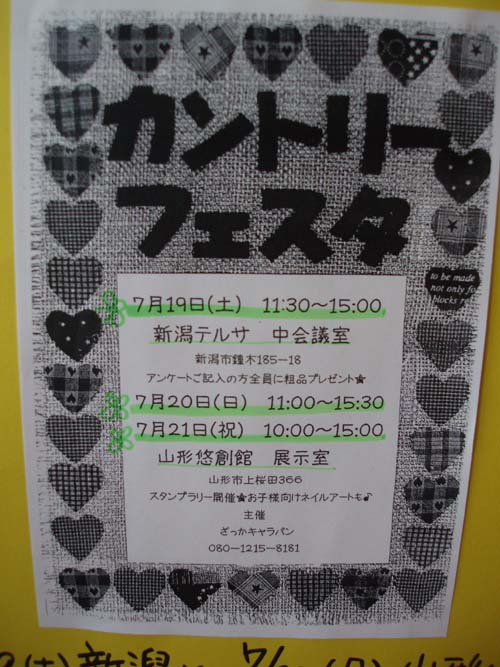 カントリー
フェスタ
to be made
not only fo
blocks
7月19日(土) 11:30～15:00
新潟テルサ 中会議室
新潟市鐘木185－18
アンケートご記入の方全員に粗品プレゼント★
7月20日(日) 11:00～15:30
7月21日(祝) 10:00～15:00
山形悠創館 展示室
山形市上桜田366
スタンプラリー開催★お子様向けネイルアートも♪
主催
ざっかキャラバン
080－1215－8181
(土)新潟